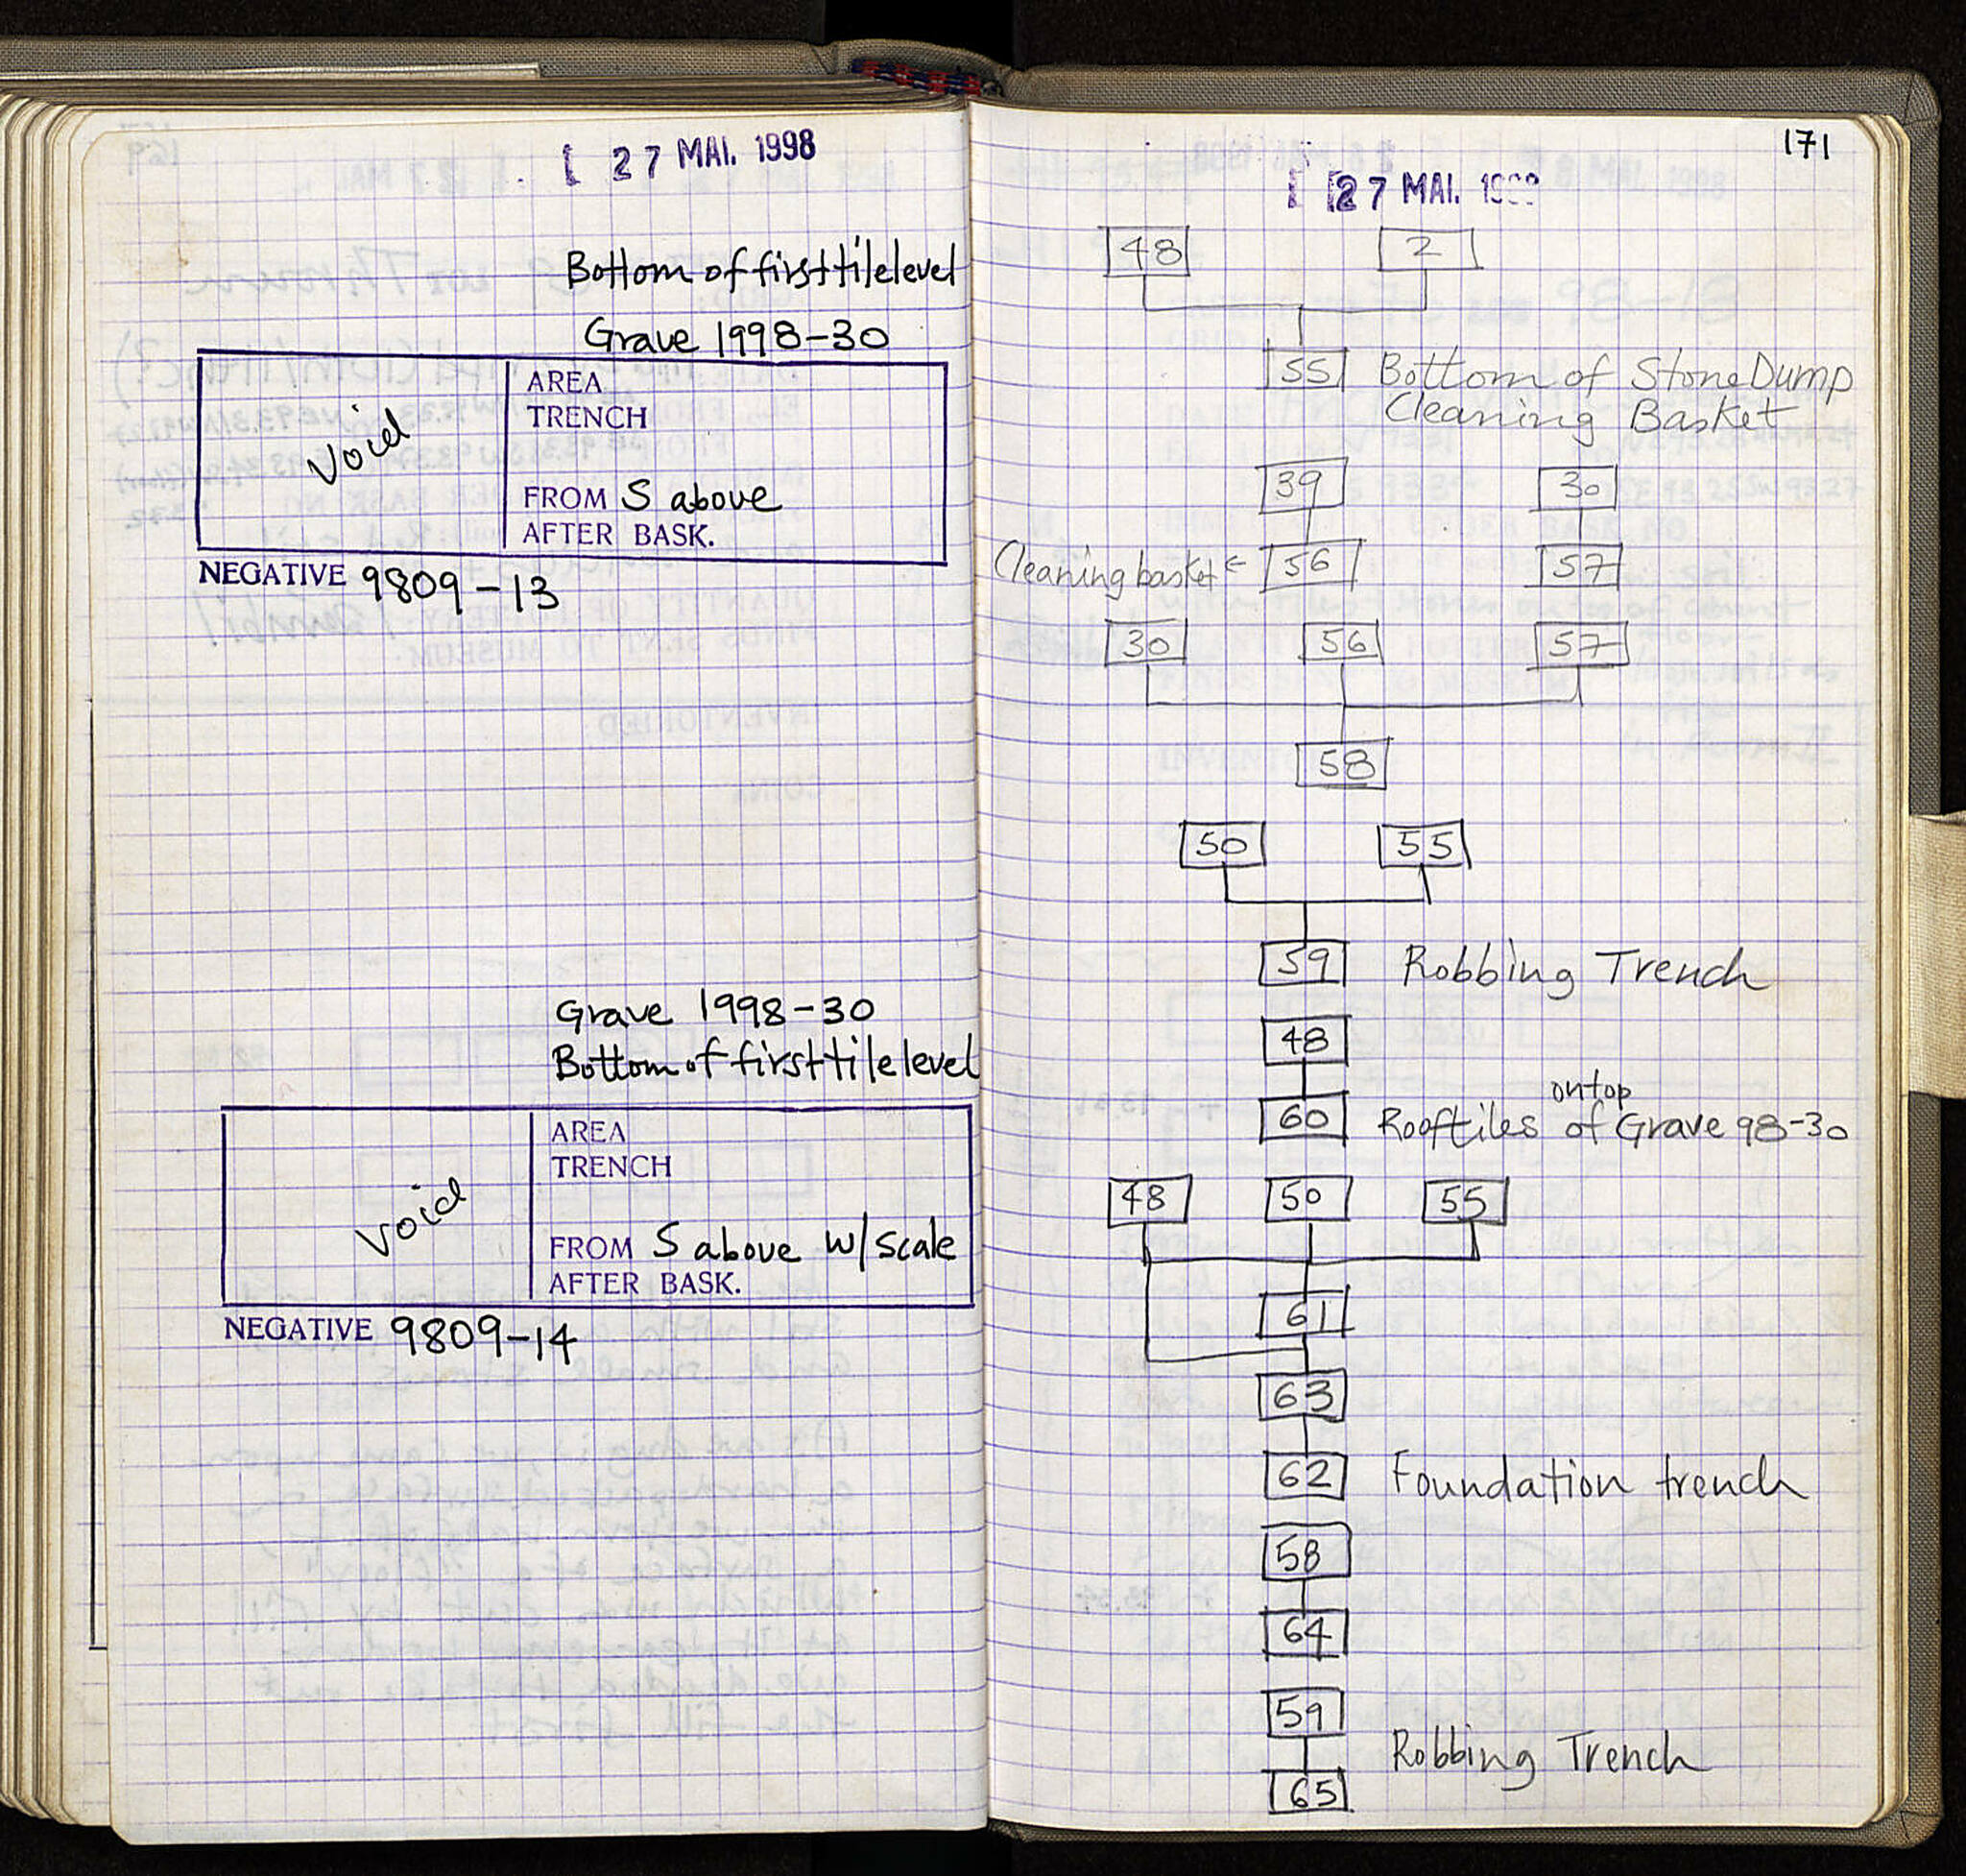 27 MAI. 1998
Bottom of first tile level
Grave 1998-30
void
AREA
TRENCH
FROM S above
AFTER BASK.
NEGATIVE 9809-13
Grave 1998-30
Bottom of first tile level
void
AREA
TRENCH
FROM S above w/scale
AFTER BASK.
NEGATIVE 9809-14
171
27 MAI.
48 2
55 Bottom of Stone Dump
Cleaning Basket
39 30
Cleaning basket ← 56 57
30 56 57
58
50 55
59 Robbing Trench
48
on top
60 Rooftiles of Grave 98-30
48 50 55
61
63
62 Foundation trench
58
64
59
Robbing Trench
65